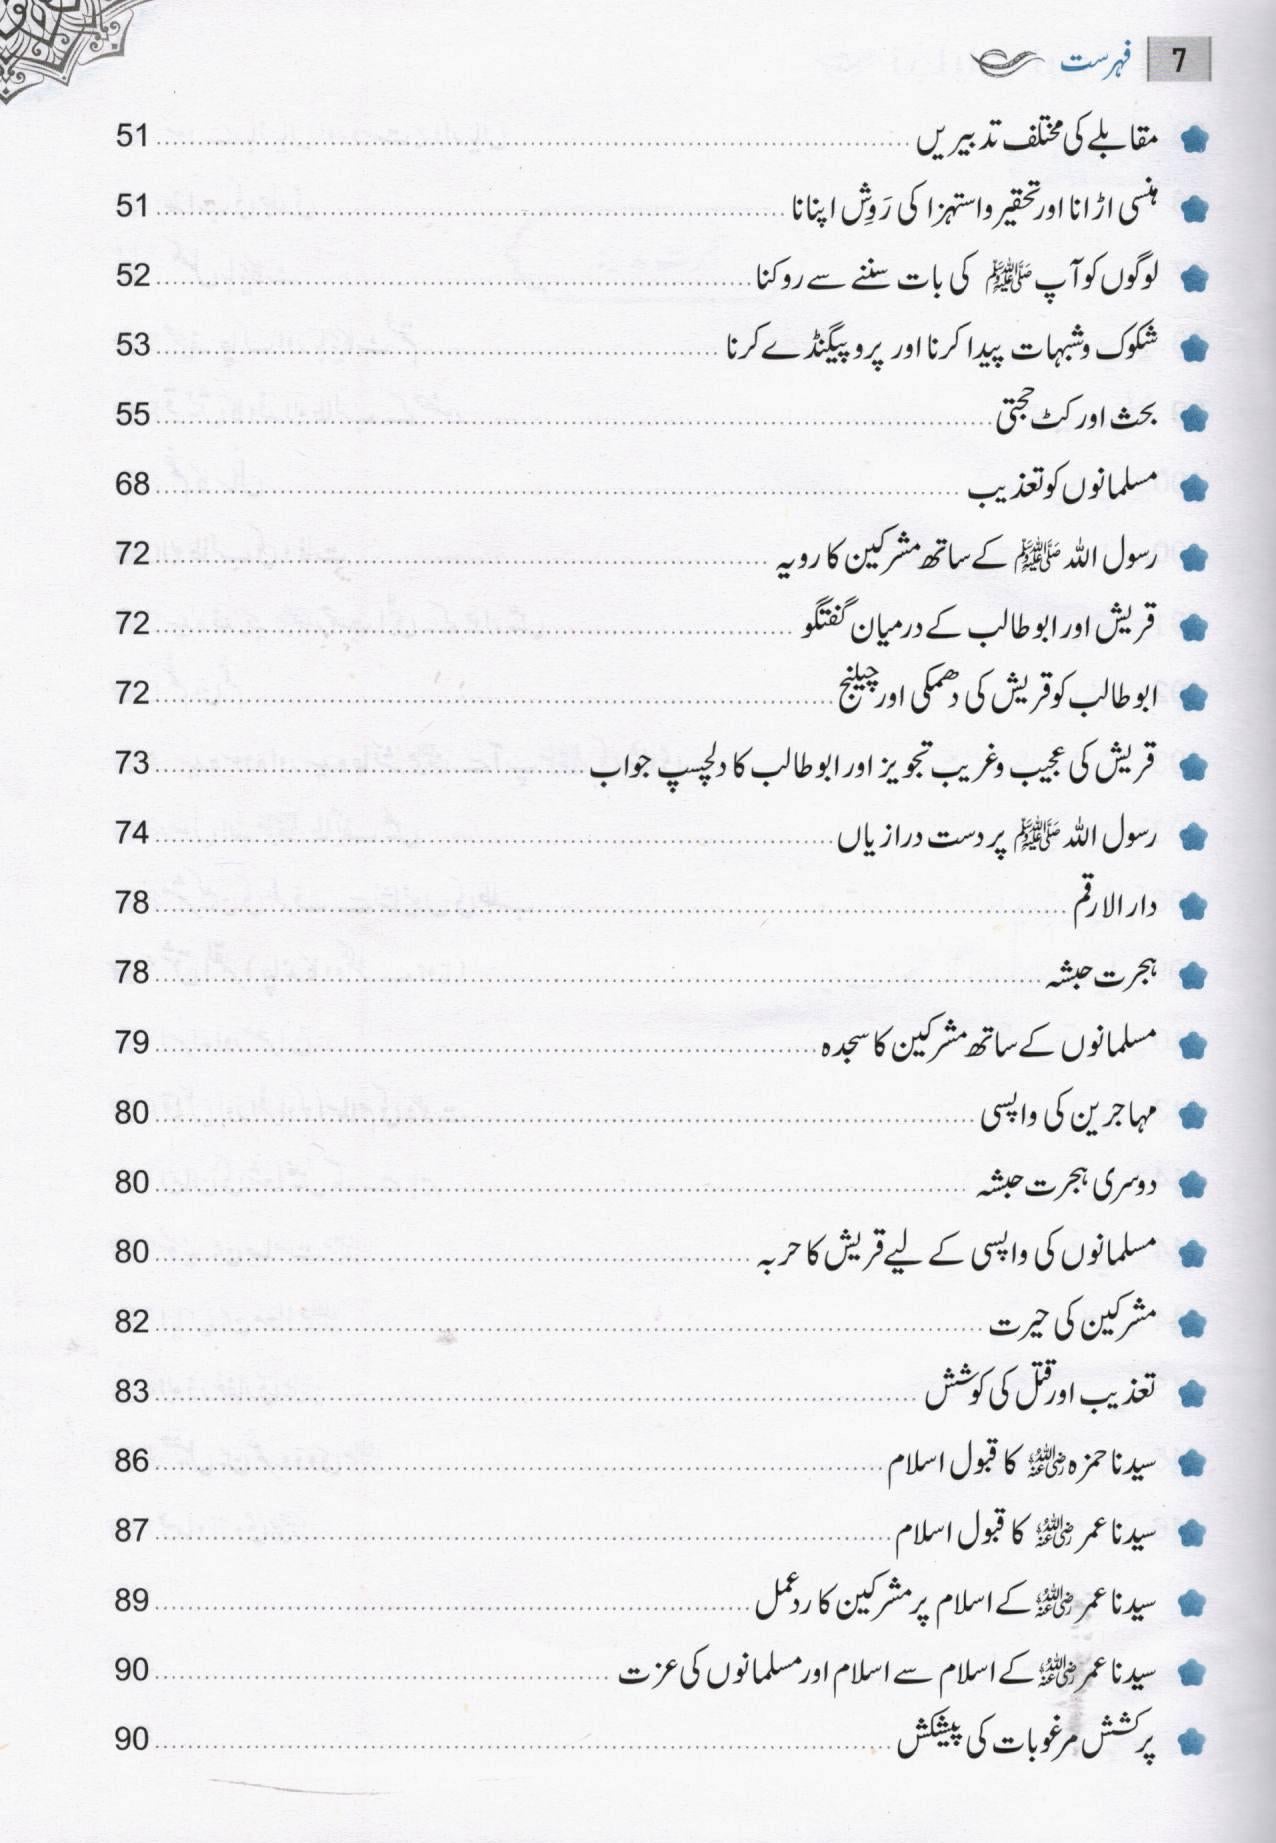 7 فہرست
مقابلے کی مختلف تدبیریں 51
ہنسی اڑانا اور تحقیر و استہزا کی رَوِش اپنانا 51
لوگوں کو آپ ﷺ کی بات سننے سے روکنا 52
شکوک و شبہات پیدا کرنا اور پروپیگنڈے کرنا 53
بحث اور کٹ حجتی 55
مسلمانوں کو تعذیب 68
رسول اللہ ﷺ کے ساتھ مشرکین کا رویہ 72
قریش اور ابو طالب کے درمیان گفتگو 72
ابو طالب کو قریش کی دھمکی اور چیلنج 72
قریش کی عجیب و غریب تجویز اور ابو طالب کا دلچسپ جواب 73
رسول اللہ ﷺ پر دست درازیاں 74
دار الارقم 78
ہجرت حبشہ 78
مسلمانوں کے ساتھ مشرکین کا سجدہ 79
مہاجرین کی واپسی 80
دوسری ہجرت حبشہ 80
مسلمانوں کی واپسی کے لیے قریش کا حربہ 80
مشرکین کی حیرت 82
تعذیب اور قتل کی کوشش 83
سیدنا حمزہ رضی اللہ عنہ کا قبول اسلام 86
سیدنا عمر رضی اللہ عنہ کا قبول اسلام 87
سیدنا عمر رضی اللہ عنہ کے اسلام پر مشرکین کا ردعمل 89
سیدنا عمر رضی اللہ عنہ کے اسلام سے اسلام اور مسلمانوں کی عزت 90
پرکشش مرغوبات کی پیشکش 90